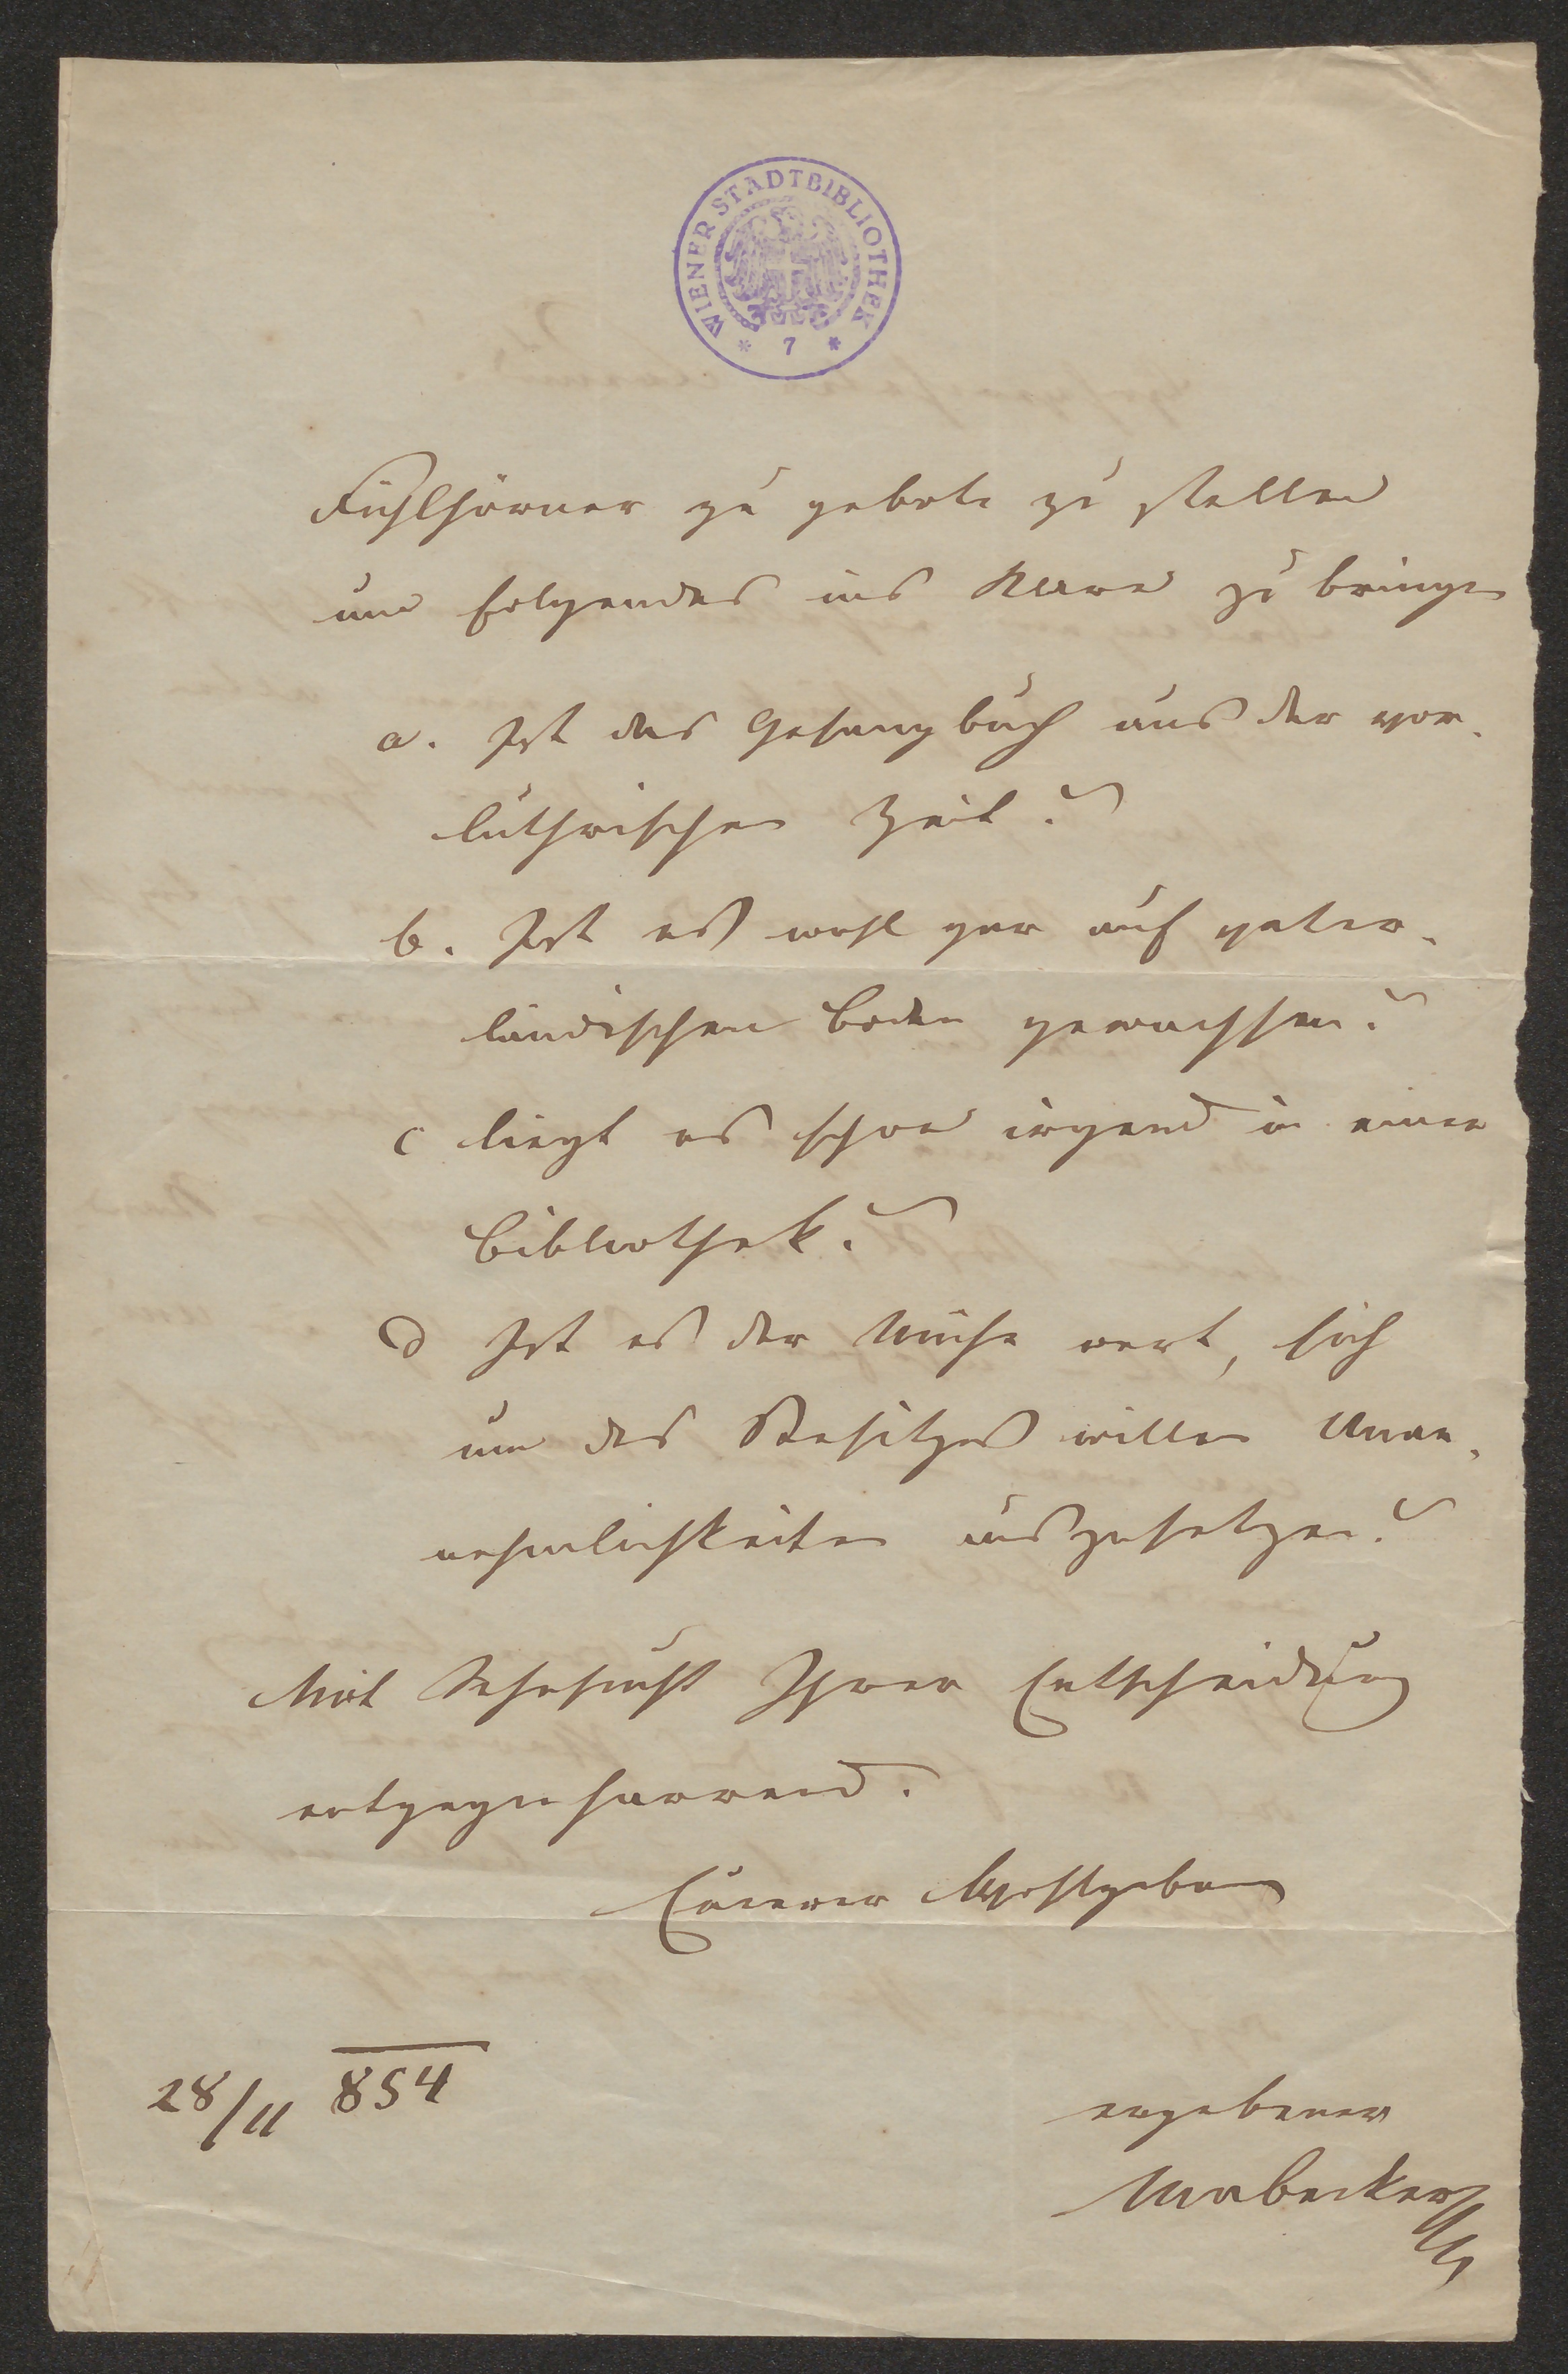 WIENER STADTBIBLIOTHEK
* 7 *
Fühlhörner zu gebote zu stellen
um folgendes ins Klare zu bringen
a. Ist das Gesangbuch aus der vor-
luthrischen Zeit?
b. Ist es wohl gar auf vater-
ländischen Boden gewachsen?
c liegt es schon irgend in einer
Bibliothek?
d Ist es der Mühe wert, sich
um des Besitzes willen Unan-
nehmlichkeiten auszusetzen?
Mit Sehnsucht Ihrer Entscheidung
entgegenharrend.
Euerer Wohlgeboren
28/11 854
ergebener
MABecker